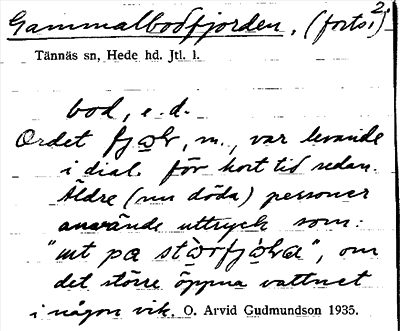 2.
Gammalbodfjorden. (forts.)
Tännäs sn, Hede hd. Jtl. l.
bod, e. d.
Ordet fjωḷ, m., var levande
i dial. för kort tid sedan.
Äldre (nu döda) personer
använde uttryck som:
"ut pa", om
det större öppna vattnet
i någon vik. O. Arvid Gudmundson 1935.